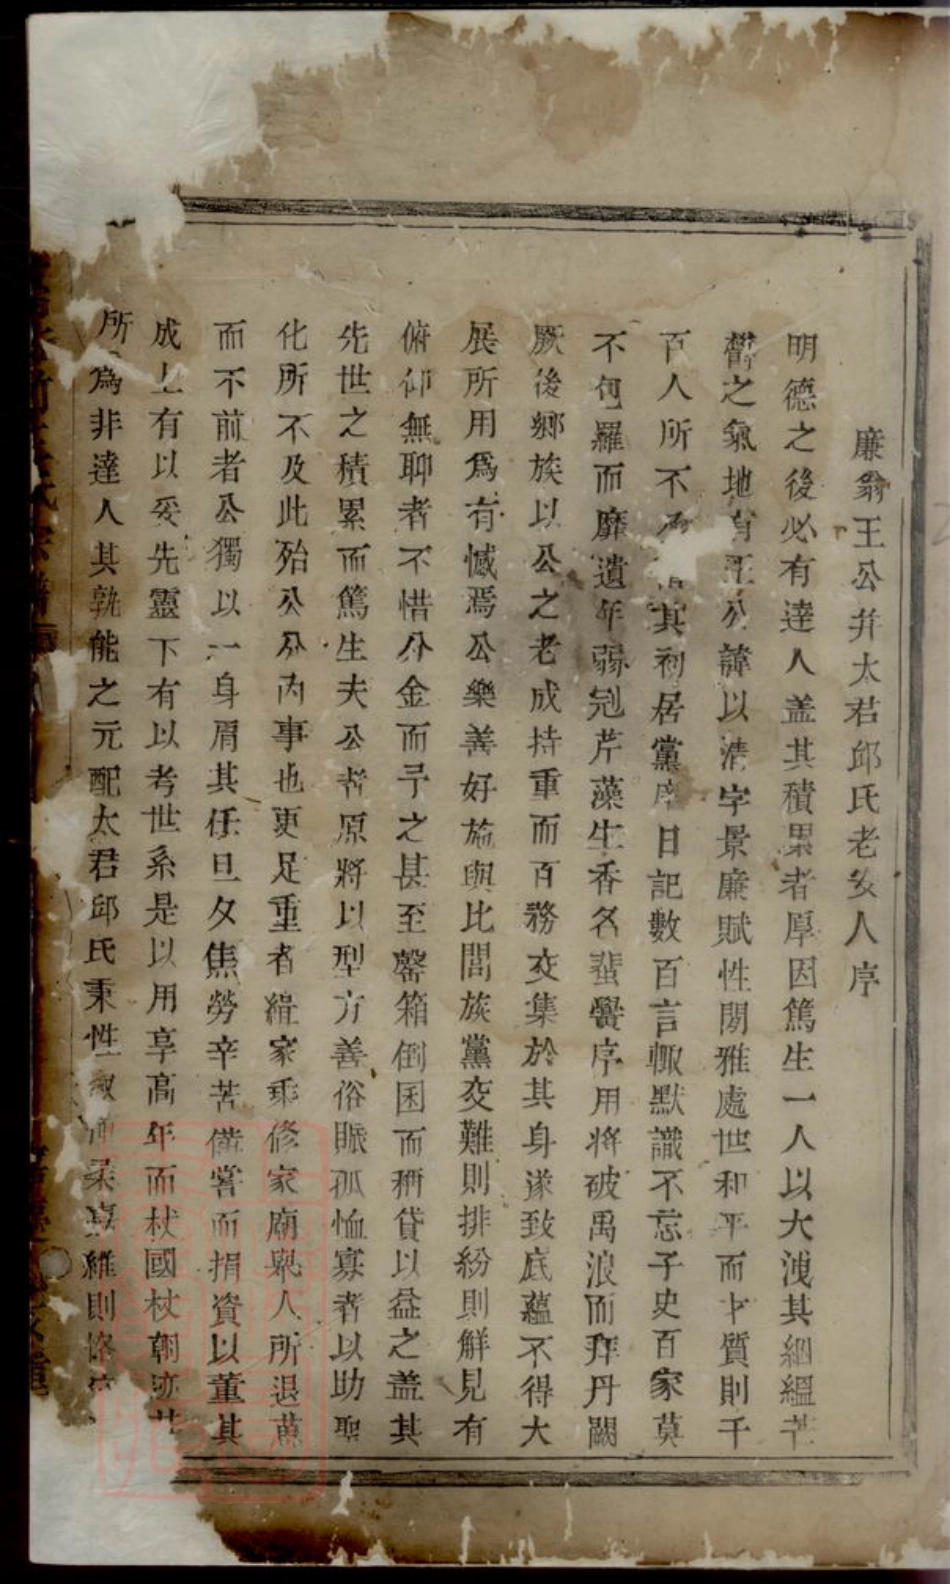 廉翁王公并太君邱氏老安人序
明德之後必有達人盖其積累者厚因篤生一人以大洩其絪縕芒
欝之氣地有王公諱以清字景廉賦性閒雅處世和平而才質則千
百人所不其初居黨庠日記數百言輙默識不忘子史百家莫
不包羅而靡遺年弱冠芹藻生香名蜚黌序用將破禹浪而拜丹闕
厥後鄉族以公之老成持重而百務交集於其身遂致底蘊不得大
展所用爲有憾焉公樂善好施與比閭族黨交難則排紛則觧見有
俯仰無聊者不惜分金而予之甚至罄箱倒囷而稱貸以益之盖其
先世之積累而篤生夫公者原將以型方善俗賑孤恤寡者以助聖
化所不及此殆公分内事也更足重者緝家乘修家廟衆人所退葸
而不前者公獨以一身肩其任旦夕焦勞辛苦備嘗而捐資以董其
成上有以妥先靈下有以考世系是以用享高年而杖國杖朝跡其
所爲非達人其孰能之元配太君邱氏秉性淑柔嘉維則恪